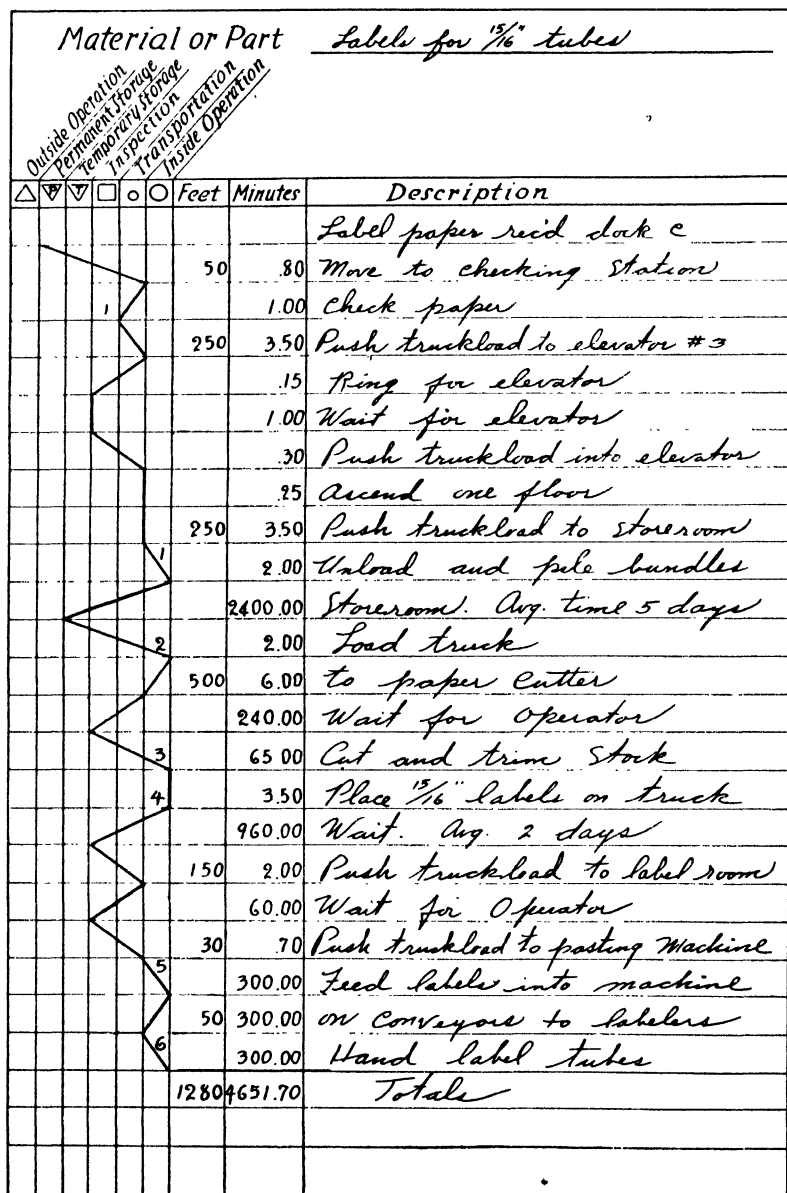 Material or Part Labels for 15/16" tubes
Outside Operation
Permanent Storage
Temporary Storage
Inspection
Transportation
Inside Operation
P T Feet Minutes Description
Label paper rec'd dock C
50 .80 Move to checking Station
1 1.00 Check paper
250 3.50 Push truckload to elevator #3
.15 Ring for elevator
1.00 Wait for elevator
.30 Push truckload into elevator
.25 Ascend one floor
250 3.50 Push truckload to storeroom
1 2.00 Unload and pile bundles
2400.00 Storeroom. Avg. time 5 days
2 2.00 Load truck
500 6.00 to paper cutter
240.00 Wait for operator
3 65 00 Cut and trim Stock
4 3.50 Place 15/16" labels on truck
960.00 Wait. Avg. 2 days
150 2.00 Push truckload to label room
60.00 Wait for Operator
30 .70 Push truckload to pasting Machine
5 300.00 Feed labels into machine
50 300.00 on conveyors to labelers
6 300.00 Hand label tubes
1280 4651.70 Totals